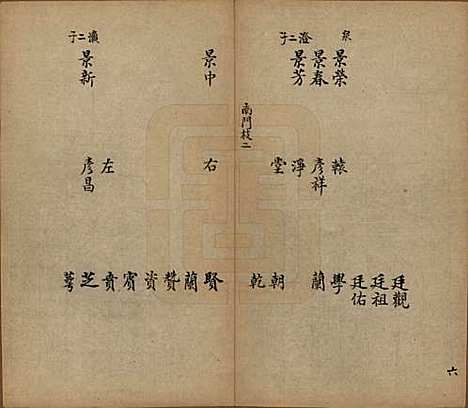 泉
景榮
澄二子
景春
景芳
景中
瀛二子
景新
南門枝二
轅
彥祥
淨
堂
右
左
彥昌
廷觀
廷祖
廷佑
學
蘭
朝
乾
賢
蘭
贊
資
賓
賁
芝
萼
六